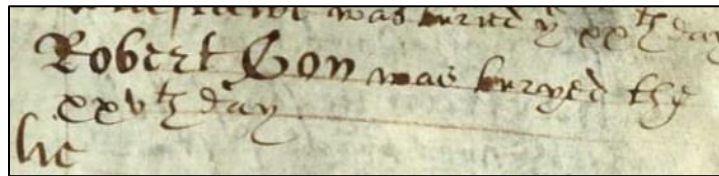 was buried yͤ xxᵗʰ day
Robert Gon was buryed the
xxvᵗʰ day